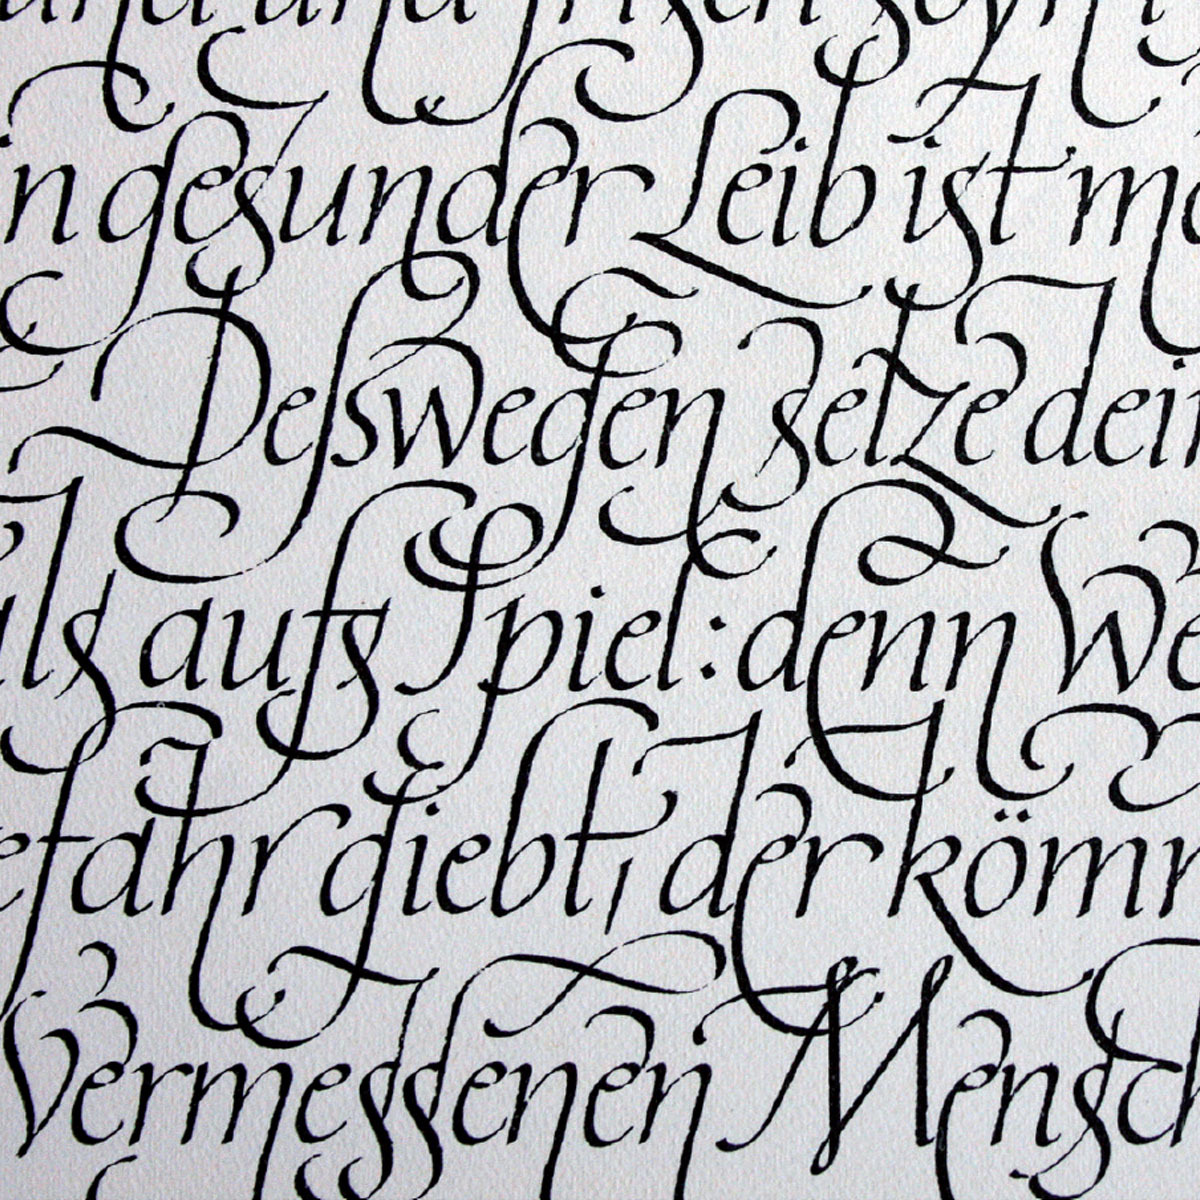 und frisch
in gesunder Leib ist me
Desswegen setze dein
als aufs Spiel: denn We
efahr giebt, der kömm
Vermessenen Mensch